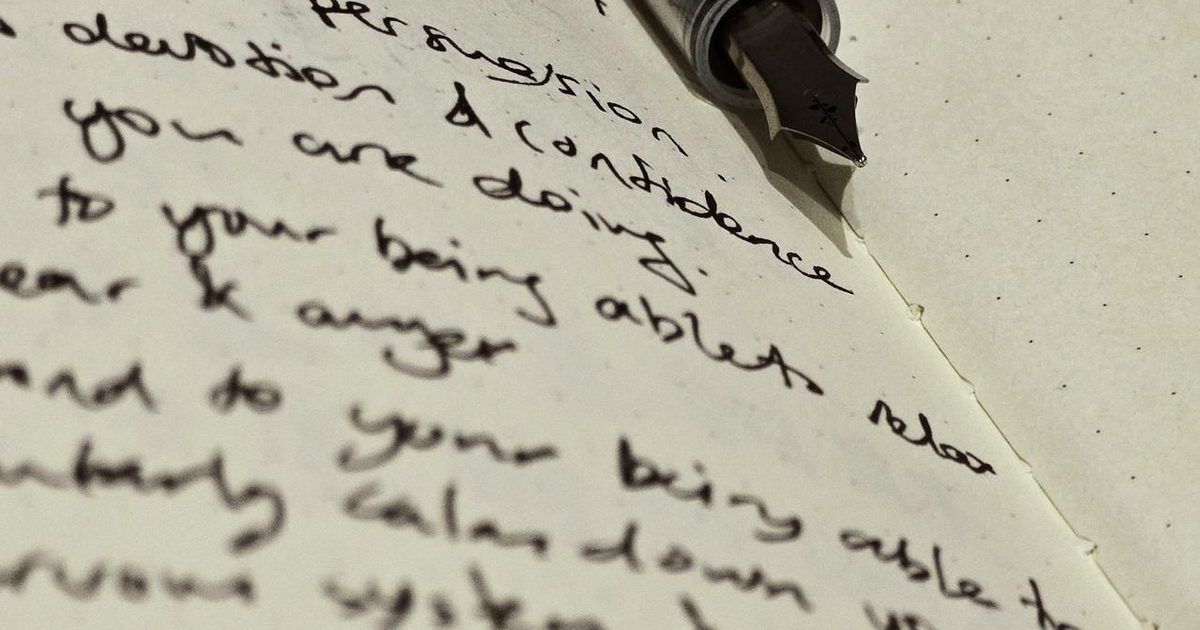 persuasion
devotion & confidence
you are doing.
to your being able to relax
ear & anger
and to your being able to
calm down
system